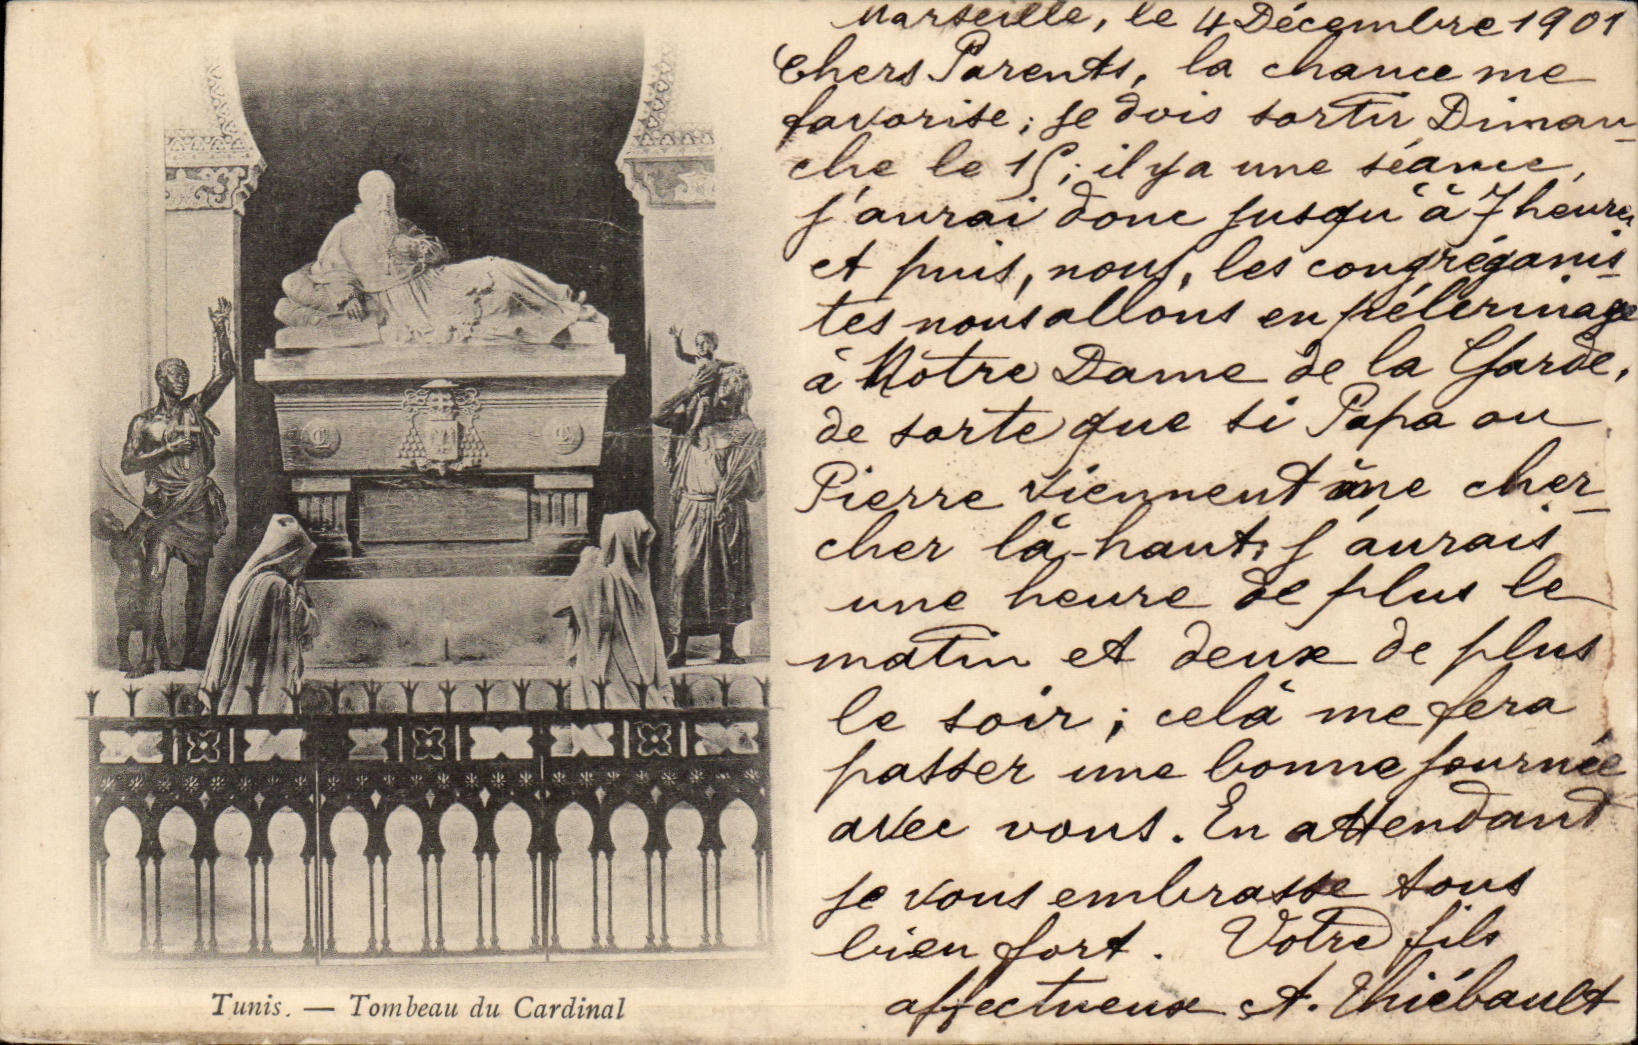 Marseille, le 4 Décembre 1901
Chers Parents, la chance me
favorise ; je dois sortir Diman-
che le 15 ; il y a une séance,
j'aurai donc jusqu'à 7 heures
et puis, nous, les congréganis-
tes nous allons en pélerinage
à Notre Dame de la Garde,
de sorte que si Papa ou
Pierre viennent me cher-
cher là-haut, j'aurais
une heure de plus le
matin et deux de plus
le soir ; celà me fera
passer une bonne journée
avec vous. En attendant
je vous embrasse tous
bien fort. Votre fils
affectueux A. Thiébault
Tunis. — Tombeau du Cardinal